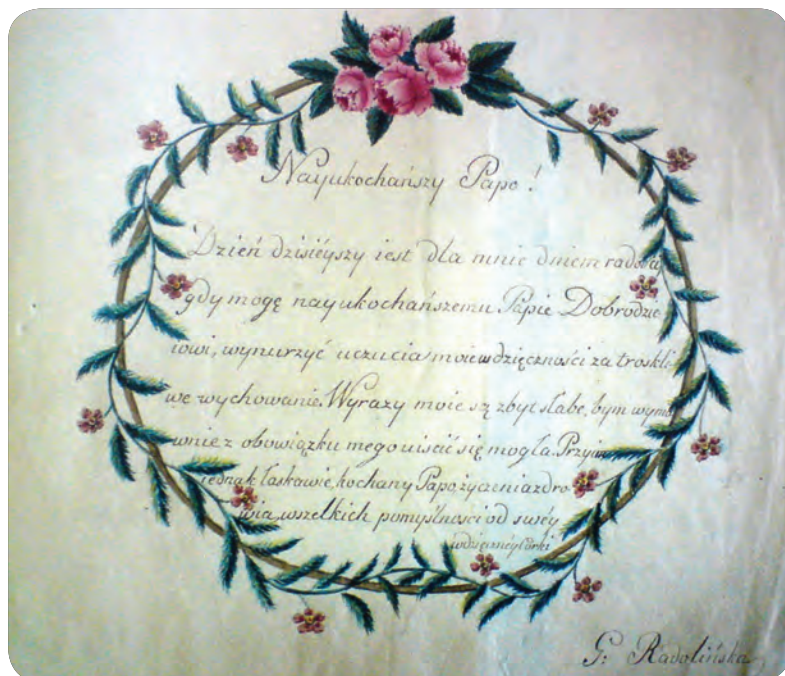 Nayukochańszy Papo!
Dzień dzisiéyszy iest dla mnie dniem radości
gdy mogę nayukochańszemu Papie Dobrodzie
iowi, wynurzyć uczucia moie wdzięczności za troskli-
we wychowanie. Wyrazy moie są zbyt słabe, bym wymo
wnie z obowiązku mego uiścić się mogła. Przyim
iednak łaskawie, kochany Papo życzenia zdro
wia, wszelkich pomyślności od swéy
wdzięcznéy Córki
G: Radolińska